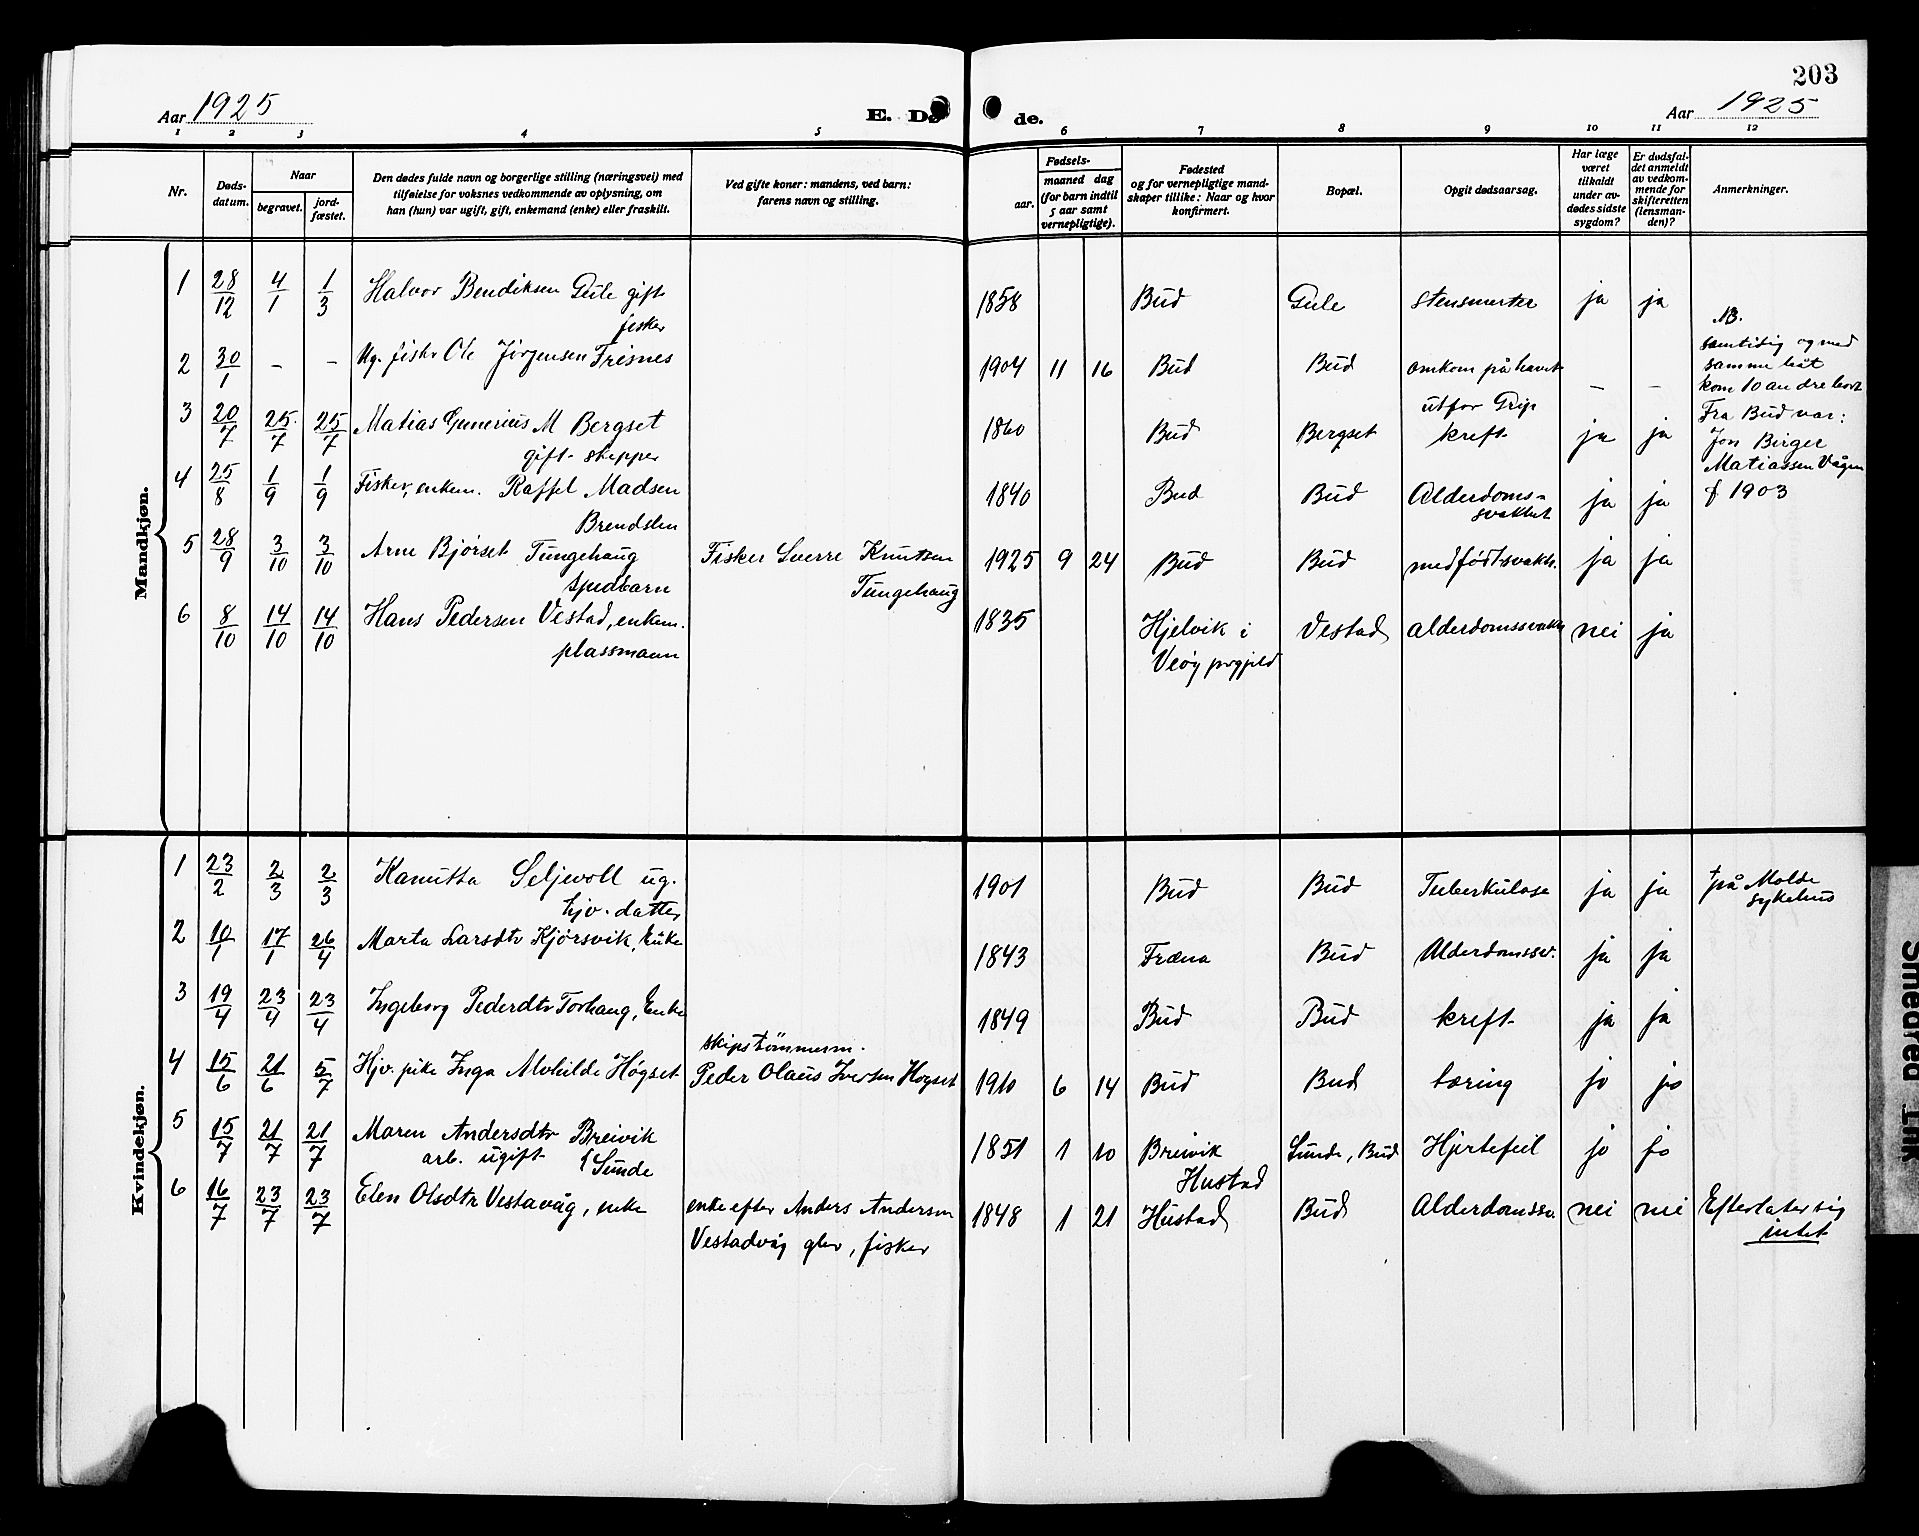 203
Aar 1925
E. Dø
de.
Aar 1925
1 2 3 4 5 6 7 8 9 10 11 12
Nr.
Døds-
datum.
Naar
begravet.
jord-
fæstet.
Den dødes fulde navn og borgerlige stilling (næringsvei) med
tilføielse for voksnes vedkommende av oplysning, om
han (hun) var ugift, gift, enkemand (enke) eller fraskilt.
Ved gifte koner: mandens, ved barn:
farens navn og stilling.
Fødsels-
aar.
maaned dag
(for barn indtil
5 aar samt
vernepligtige).
Fødested
og for vernepligtige mand-
skaper tillike: Naar og hvor
konfirmert.
Bopæl.
Opgit dødsaarsag.
Har læge
været
tilkaldt
under av-
dødes sidste
sygdom?
Er dødsfal-
det anmeldt
av vedkom-
mende for
skifteretten
(lensman-
den)?
Anmerkninger.
Mandkjøn.
1 28/12 4/1 1/3 Halvor Bendiksen Gule gift 1858 Bud Gule stensmerter ja ja
fisker
2 30/1 - - Ug. fisker Ole Jørgensen Trisnes 1904 11 16 Bud Bud omkom på havet - -
utfor Grip
NB.
samtidig og med
samme båt
kom 10 andre bort
Fra Bud var:
Jon Birger
Matiassen Vågen
f 1903
3 20/7 25/7 25/7 Matias Gunerius M Bergset 1860 Bud Bergset kreft ja ja
gift skipper
4 25/8 1/9 1/9 Fisker, enkem. Raffel Madsen 1840 Bud Bud Alderdoms- ja ja
Brendslen svakhet
5 28/9 3/10 3/10 Arne Bjørset Tungehaug Fisker Sverre Knutsen 1925 9 24 Bud Bud medfødt svakh. ja ja
spedbarn Tungehaug
6 8/10 14/10 14/10 Hans Pedersen Vestad, enkem. 1835 Hjelvik i Vestad alderdomssvakh nei ja
plassmann Veøy prgjeld
Kvindekjøn.
1 23/2 2/3 2/3 Kanutta Seljevoll ug. 1901 Bud Bud Tuberkulose ja ja † på Molde
hjv. datter sykehus
2 10/1 17/1 26/4 Marta Larsdtr Kjørsvik, Enke 1843 Fræna Bud Alderdomssv. ja ja
3 19/4 23/4 23/4 Ingeborg Pederdtr Torhaug, Enke 1849 Bud Bud kreft ja ja
skipstømmerm.
4 15/6 21/6 5/7 Hjv. pike Inga Alvhilde Høgset Peder Olaus Iversen Høgset 1910 6 14 Bud Bud tæring jo jo
5 15/7 21/7 21/7 Maren Andersdtr Breivik 1851 1 10 Breivik Sunde, Bud Hjertefeil jo jo
arb. ugift Sunde Hustad
6 16/7 23/7 23/7 Elen Olsdtr Vestavåg, enke enke efter Anders Andersen 1848 1 21 Hustad Bud Alderdomssv. nei nei Efterlater sig
Vestadvåg, fisker intet
Smeared Ink